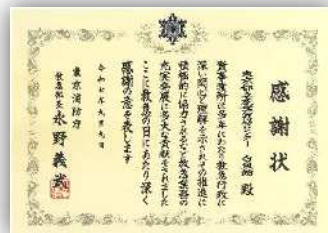 感謝状
殿
貴事務所は多年にわたり救急行政に
深い関心と理解を示されその推進に
積極的に協力されるなど救急業務の
充実発展に多大な貢献をされました
ここに救急の日にあたり深く
感謝の意を表します
令和七年九月九日
東京消防庁
救急部長 永野義武